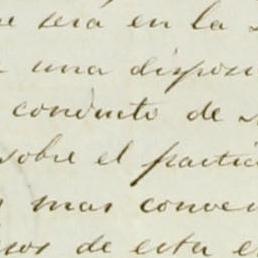 será en la
una disposi
conducto de
sobre el partic
mas conve
de esta